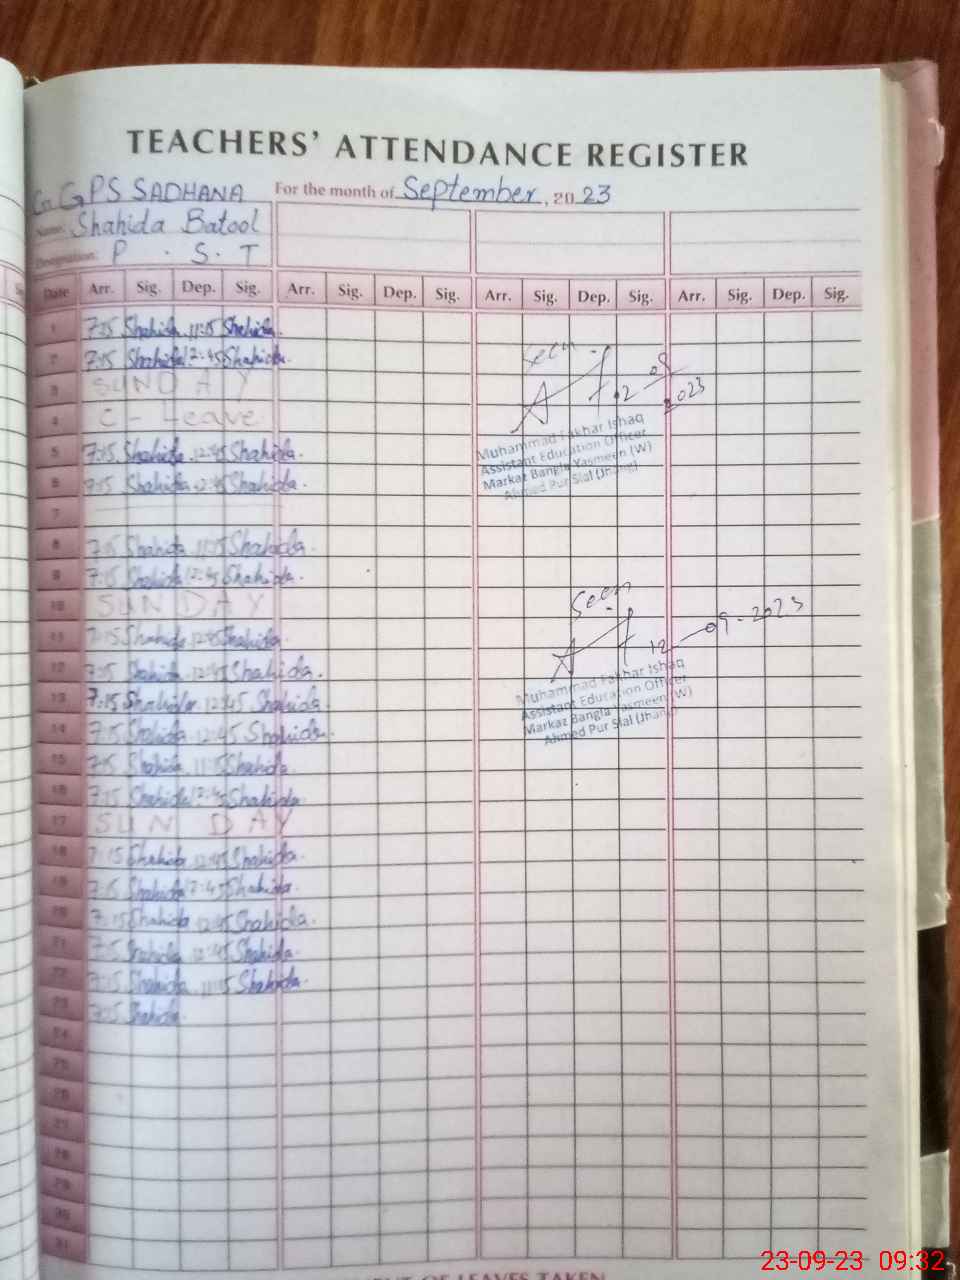 TEACHERS' ATTENDANCE REGISTER
GGPS SADHANA For the month of September, 2023
Name: Shahida Batool
Designation: P . S . T
Date Arr. Sig. Dep. Sig. Arr. Sig. Dep. Sig. Arr. Sig. Dep. Sig. Arr. Sig. Dep. Sig.
1 7:15 Shahida 11:15 Shahida.
2 7:15 Shahida 12:45 Shahida.
3 SUNDAY
4 C - Leave
5 7:15 Shahida 12:45 Shahida.
6 7:15 Shahida 12:45 Shahida.
7
8 7:15 Shahida 11:15 Shahida.
9 7:15 Shahida 12:45 Shahida.
10 SUNDAY
11 7:15 Shahida 12:45 Shahida.
12 7:15 Shahida 12:45 Shahida.
13 7:15 Shahida 12:45 Shahida.
14 7:15 Shahida 12:45 Shahida.
15 7:15 Shahida 11:15 Shahida.
16 7:15 Shahida 12:45 Shahida.
17 SUN DAY
18 7:15 Shahida 12:45 Shahida.
19 7:15 Shahida 12:45 Shahida.
20 7:15 Shahida 12:45 Shahida.
21 7:15 Shahida 12:45 Shahida.
22 7:15 Shahida 11:15 Shahida.
23 7:15 Shahida
24
25
26
27
28
29
30
31
Seen
2023
Muhammad Fakhar Ishaq
Assistant Education Officer
Markaz Bangla Yasmeen (W)
Ahmed Pur Sial (Jhang)
Seen
12-09-2023
Muhammad Fakhar Ishaq
Assistant Education Officer
Markaz Bangla Yasmeen (W)
Ahmed Pur Sial (Jhang)
OF LEAVES TAKEN
23-09-23 09:32